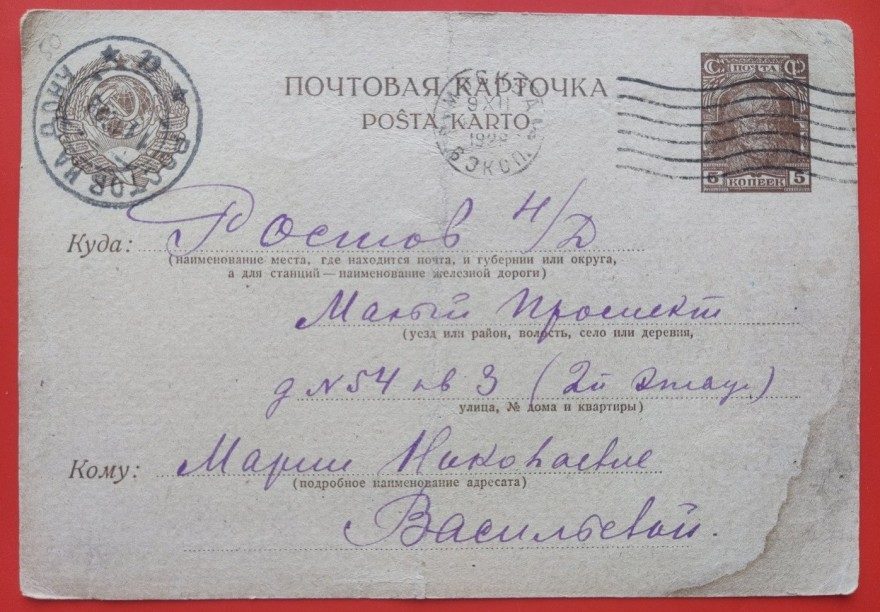 50
ПОЧТОВАЯ КАРТОЧКА
POŜTA KARTO
С. ПОЧТА Ф.
5 КОПЕЕК 5
РОСТОВ НА ДОНУ
9 XII
1928
ЭКСП.
Куда: Ростов н/Д
(наименование места, где находится почта, и губернии или округа,
а для станций — наименование железной дороги)
Малый Проспект
(уезд или район, волость, село или деревня,
д № 54 кв 3 (2й этаж)
улица, № дома и квартиры)
Кому: Марии Николаевне
(подробное наименование адресата)
Васильевой.